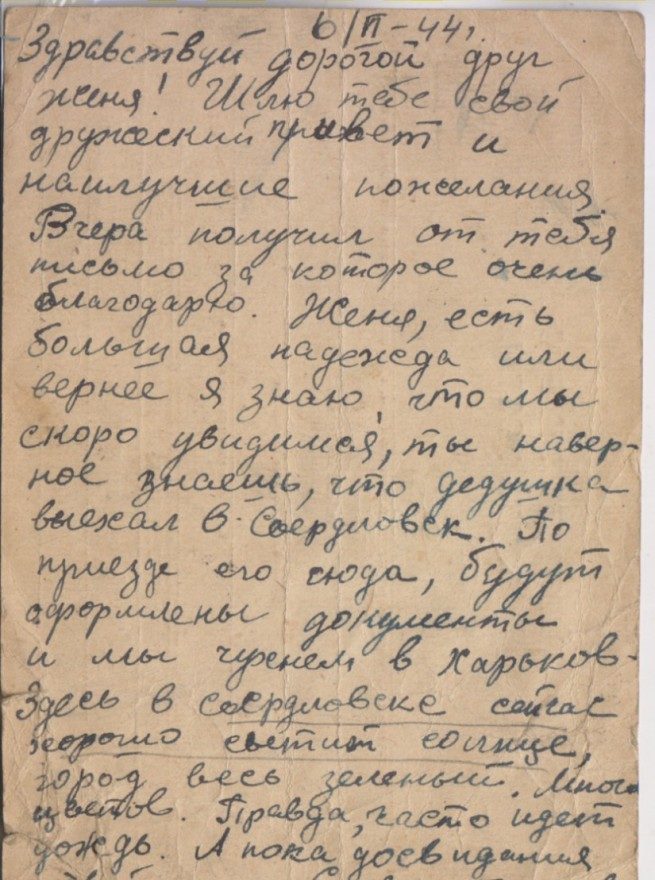 6/VI-44г.
Здравствуй дорогой друг
Женя! Шлю тебе свой
дружеский привет и
наилучшие пожелания.
Вчера получил от тебя
письмо за которое очень
благодарю. Женя, есть
большая надежда или
вернее я знаю, что мы
скоро увидимся, ты навер-
ное знаешь, что дедушка
выехал в Свердловск. По
приезде его сюда, будут
оформлены документы
и мы в Харьков-
Здесь в Свердловске сейчас
хорошо светит солнце,
город весь зеленый. Много
цветов. Правда, часто идет
дождь. А пока досвидания